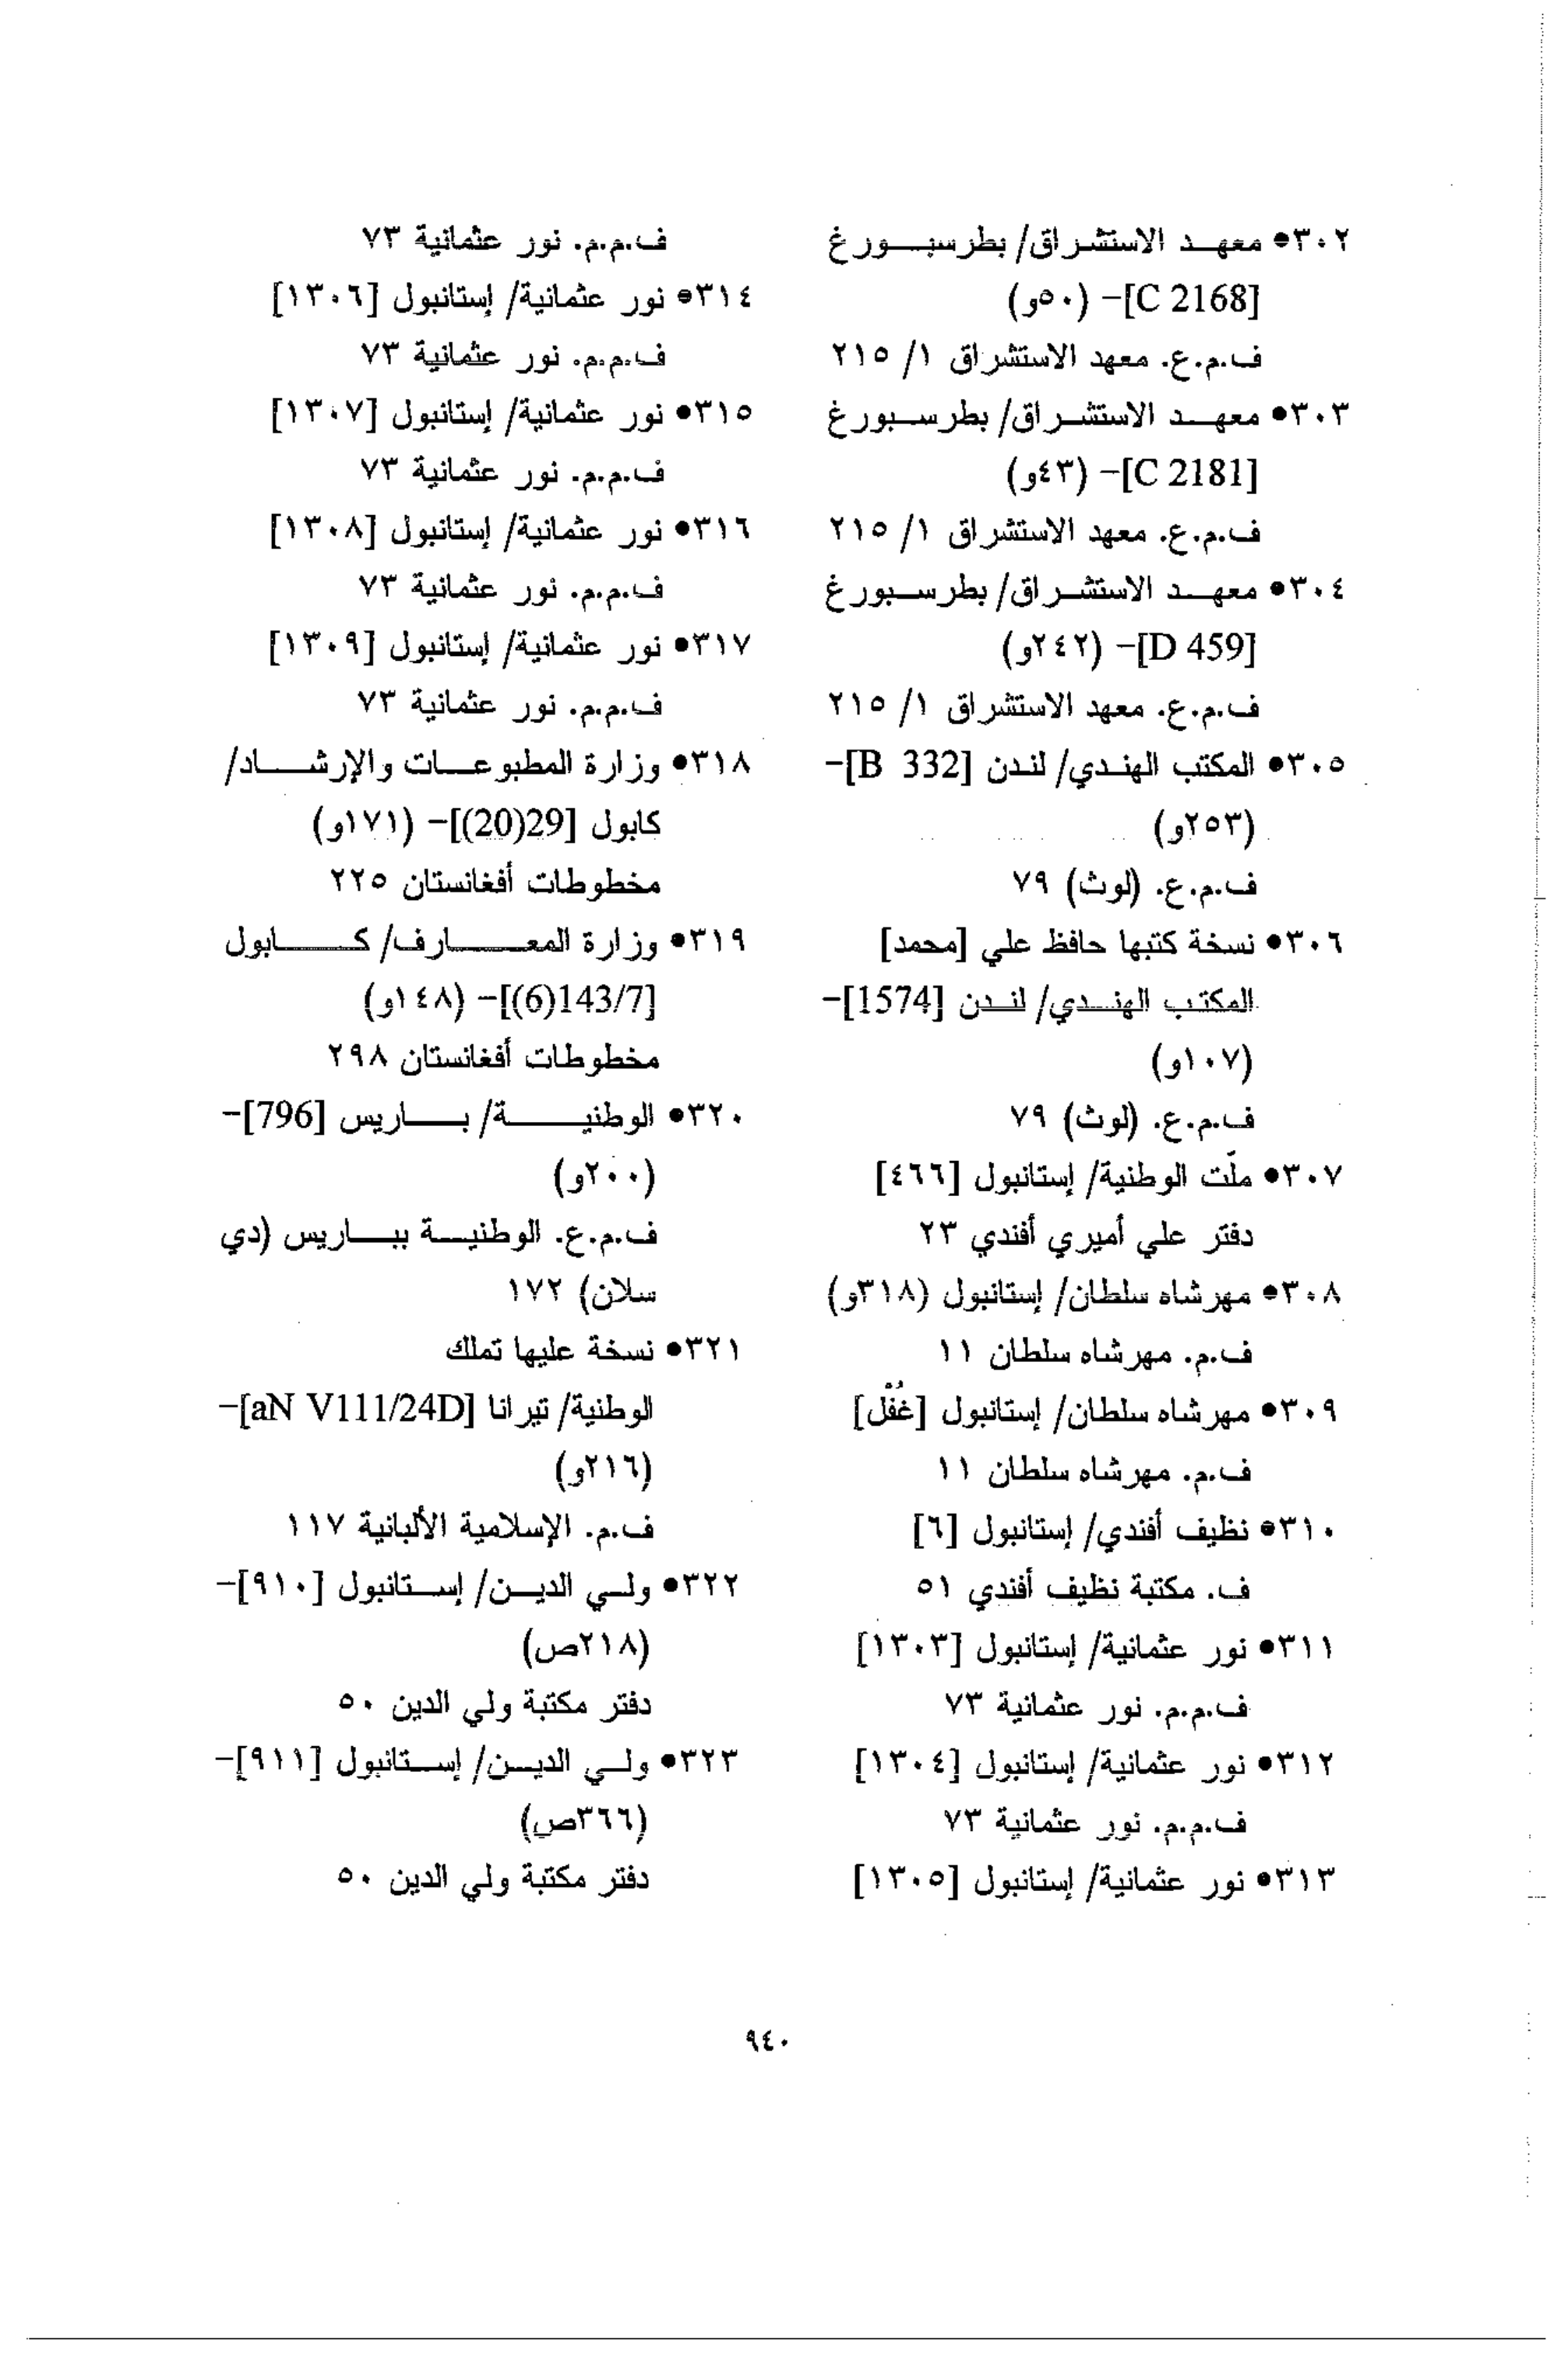 ٣٠٢• معهد الاستشراق/ بطرسبورغ
[C 2168]- (٥٠و)
ف.م.ع. معهد الاستشراق ١/ ٢١٥
٣٠٣• معهد الاستشراق/ بطرسبورغ
[C 2181]- (٤٣و)
ف.م.ع. معهد الاستشراق ١/ ٢١٥
٣٠٤• معهد الاستشراق/ بطرسبورغ
[D 459]- (٢٤٢و)
ف.م.ع. معهد الاستشراق ١/ ٢١٥
٣٠٥• المكتب الهندي/ لندن [B 332]-
(٢٥٣و)
ف.م.ع. (لوث) ٧٩
٣٠٦• نسخة كتبها حافظ علي [محمد]
المكتب الهندي/ لندن [1574]-
(١٠٧و)
ف.م.ع. (لوث) ٧٩
٣٠٧• ملّت الوطنية/ إستانبول [٤٦٦]
دفتر علي أميري أفندي ٢٣
٣٠٨• مهرشاه سلطان/ إستانبول (٣١٨و)
ف.م. مهرشاه سلطان ١١
٣٠٩• مهرشاه سلطان/ إستانبول [غُفْل]
ف.م. مهرشاه سلطان ١١
٣١٠• نظيف أفندي/ إستانبول [٦]
ف. مكتبة نظيف أفندي ٥١
٣١١• نور عثمانية/ إستانبول [١٣٠٣]
ف.م.م. نور عثمانية ٧٣
٣١٢• نور عثمانية/ إستانبول [١٣٠٤]
ف.م.م. نور عثمانية ٧٣
٣١٣• نور عثمانية/ إستانبول [١٣٠٥]
ف.م.م. نور عثمانية ٧٣
٣١٤• نور عثمانية/ إستانبول [١٣٠٦]
ف.م.م. نور عثمانية ٧٣
٣١٥• نور عثمانية/ إستانبول [١٣٠٧]
ف.م.م. نور عثمانية ٧٣
٣١٦• نور عثمانية/ إستانبول [١٣٠٨]
ف.م.م. نور عثمانية ٧٣
٣١٧• نور عثمانية/ إستانبول [١٣٠٩]
ف.م.م. نور عثمانية ٧٣
٣١٨• وزارة المطبوعات والإرشاد/
كابول [29(20)]- (١٧١و)
مخطوطات أفغانستان ٢٢٥
٣١٩• وزارة المعارف/ كابول
[143/7(6)]- (١٤٨و)
مخطوطات أفغانستان ٢٩٨
٣٢٠• الوطنية/ باريس [796]-
(٢٠٠و)
ف.م.ع. الوطنية بباريس (دي
سلان) ١٧٢
٣٢١• نسخة عليها تملك
الوطنية/ تيرانا [aN V111/24D]-
(٢١٦و)
ف.م. الإسلامية الألبانية ١١٧
٣٢٢• ولي الدين/ إستانبول [٩١٠]-
(٢١٨ص)
دفتر مكتبة ولي الدين ٥٠
٣٢٣• ولي الدين/ إستانبول [٩١١]-
(٣٦٦ص)
دفتر مكتبة ولي الدين ٥٠
٩٤٠